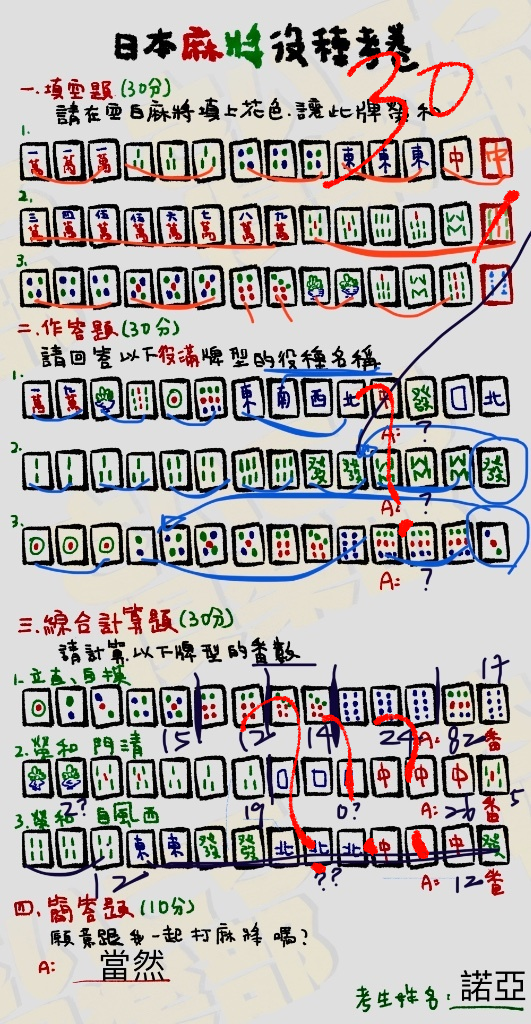 日本麻將役種考卷
30
一.填空題(30分)
請在空白麻將填上花色.讓此牌榮和
1.
一萬 一萬 一萬 東 東 東 中 中
2.
三萬 四萬 伍萬 伍萬 六萬 七萬 八萬 九萬
3.
二.作答題(30分)
請回答以下役滿牌型的役種名稱
1.
一萬 九萬 東 南 西 北 中 發 北
A: ?
2.
發 發 發
A: ?
3.
A: ?
三.綜合計算題(30分)
請計算以下牌型的番數
1.立直、自摸
17
15 12 14 24 A: 82 番
2.榮和 門清
中 中 中
2? 19 0? A: 26 番 5
3.榮和 自風西
東 東 發 發 北 北 北 中 中 中 發
12 ?? A: 12 番
四.簡答題(10分)
願意跟我一起打麻將嗎?
A: 當然
考生姓名: 諾亞